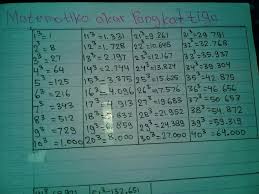 Matematika akar Pangkat tiga
1³=1 11³=1.331 21³=9.261 31³=29.791
2³=8 12³=1.728 22³=10.648 32³=32.768
3³=27 13³=2.197 23³=12.167 33³=35.937
4³=64 14³=2.744 24³=13.824 34³=39.304
5³=125 15³=3.375 25³=15.625 35³=42.875
6³=216 16³=4.096 26³=17.576 36³=46.656
7³=343 17³=4.913 27³=19.683 37³=50.653
8³=512 18³=5.832 28³=21.952 38³=54.872
9³=729 19³=6.859 29³=24.389 39³=59.319
10³=1.000 20³=8.000 30³=27.000 40³=64.000